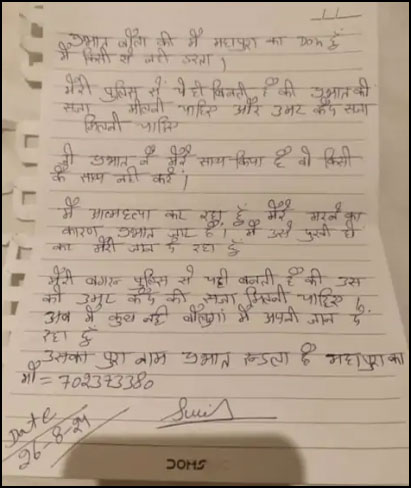 उभान बोला की मैं महापुरा का Don हूँ
मैं किसी से नही डरता।
मेरी पुलिस से ये ही विनती है की उभान की
सजा मीलनी चाहिए और उमर कैद सजा
मिलनी चाहिए
जो उभान ने मेरे साथ किया है वो किसी
के साथ नही करें।
मैं आत्महत्या कर रहा हूँ मेरे मरने का
कारण उभान जाट है। मैं उसे दुखी हो
कर मेरी जान दे रहा हूँ
मेरी पुलिस से यही बनती है की उस
को उमर कैद की सजा मिलनी चाहिए।
अब मैं कुछ नही बोलुगां मैं अपनी जान दे
रहा हूँ
उसका पुरा नाम उभान है महापुरा का
मो = 702373380
Date
26-8-24
DOMS